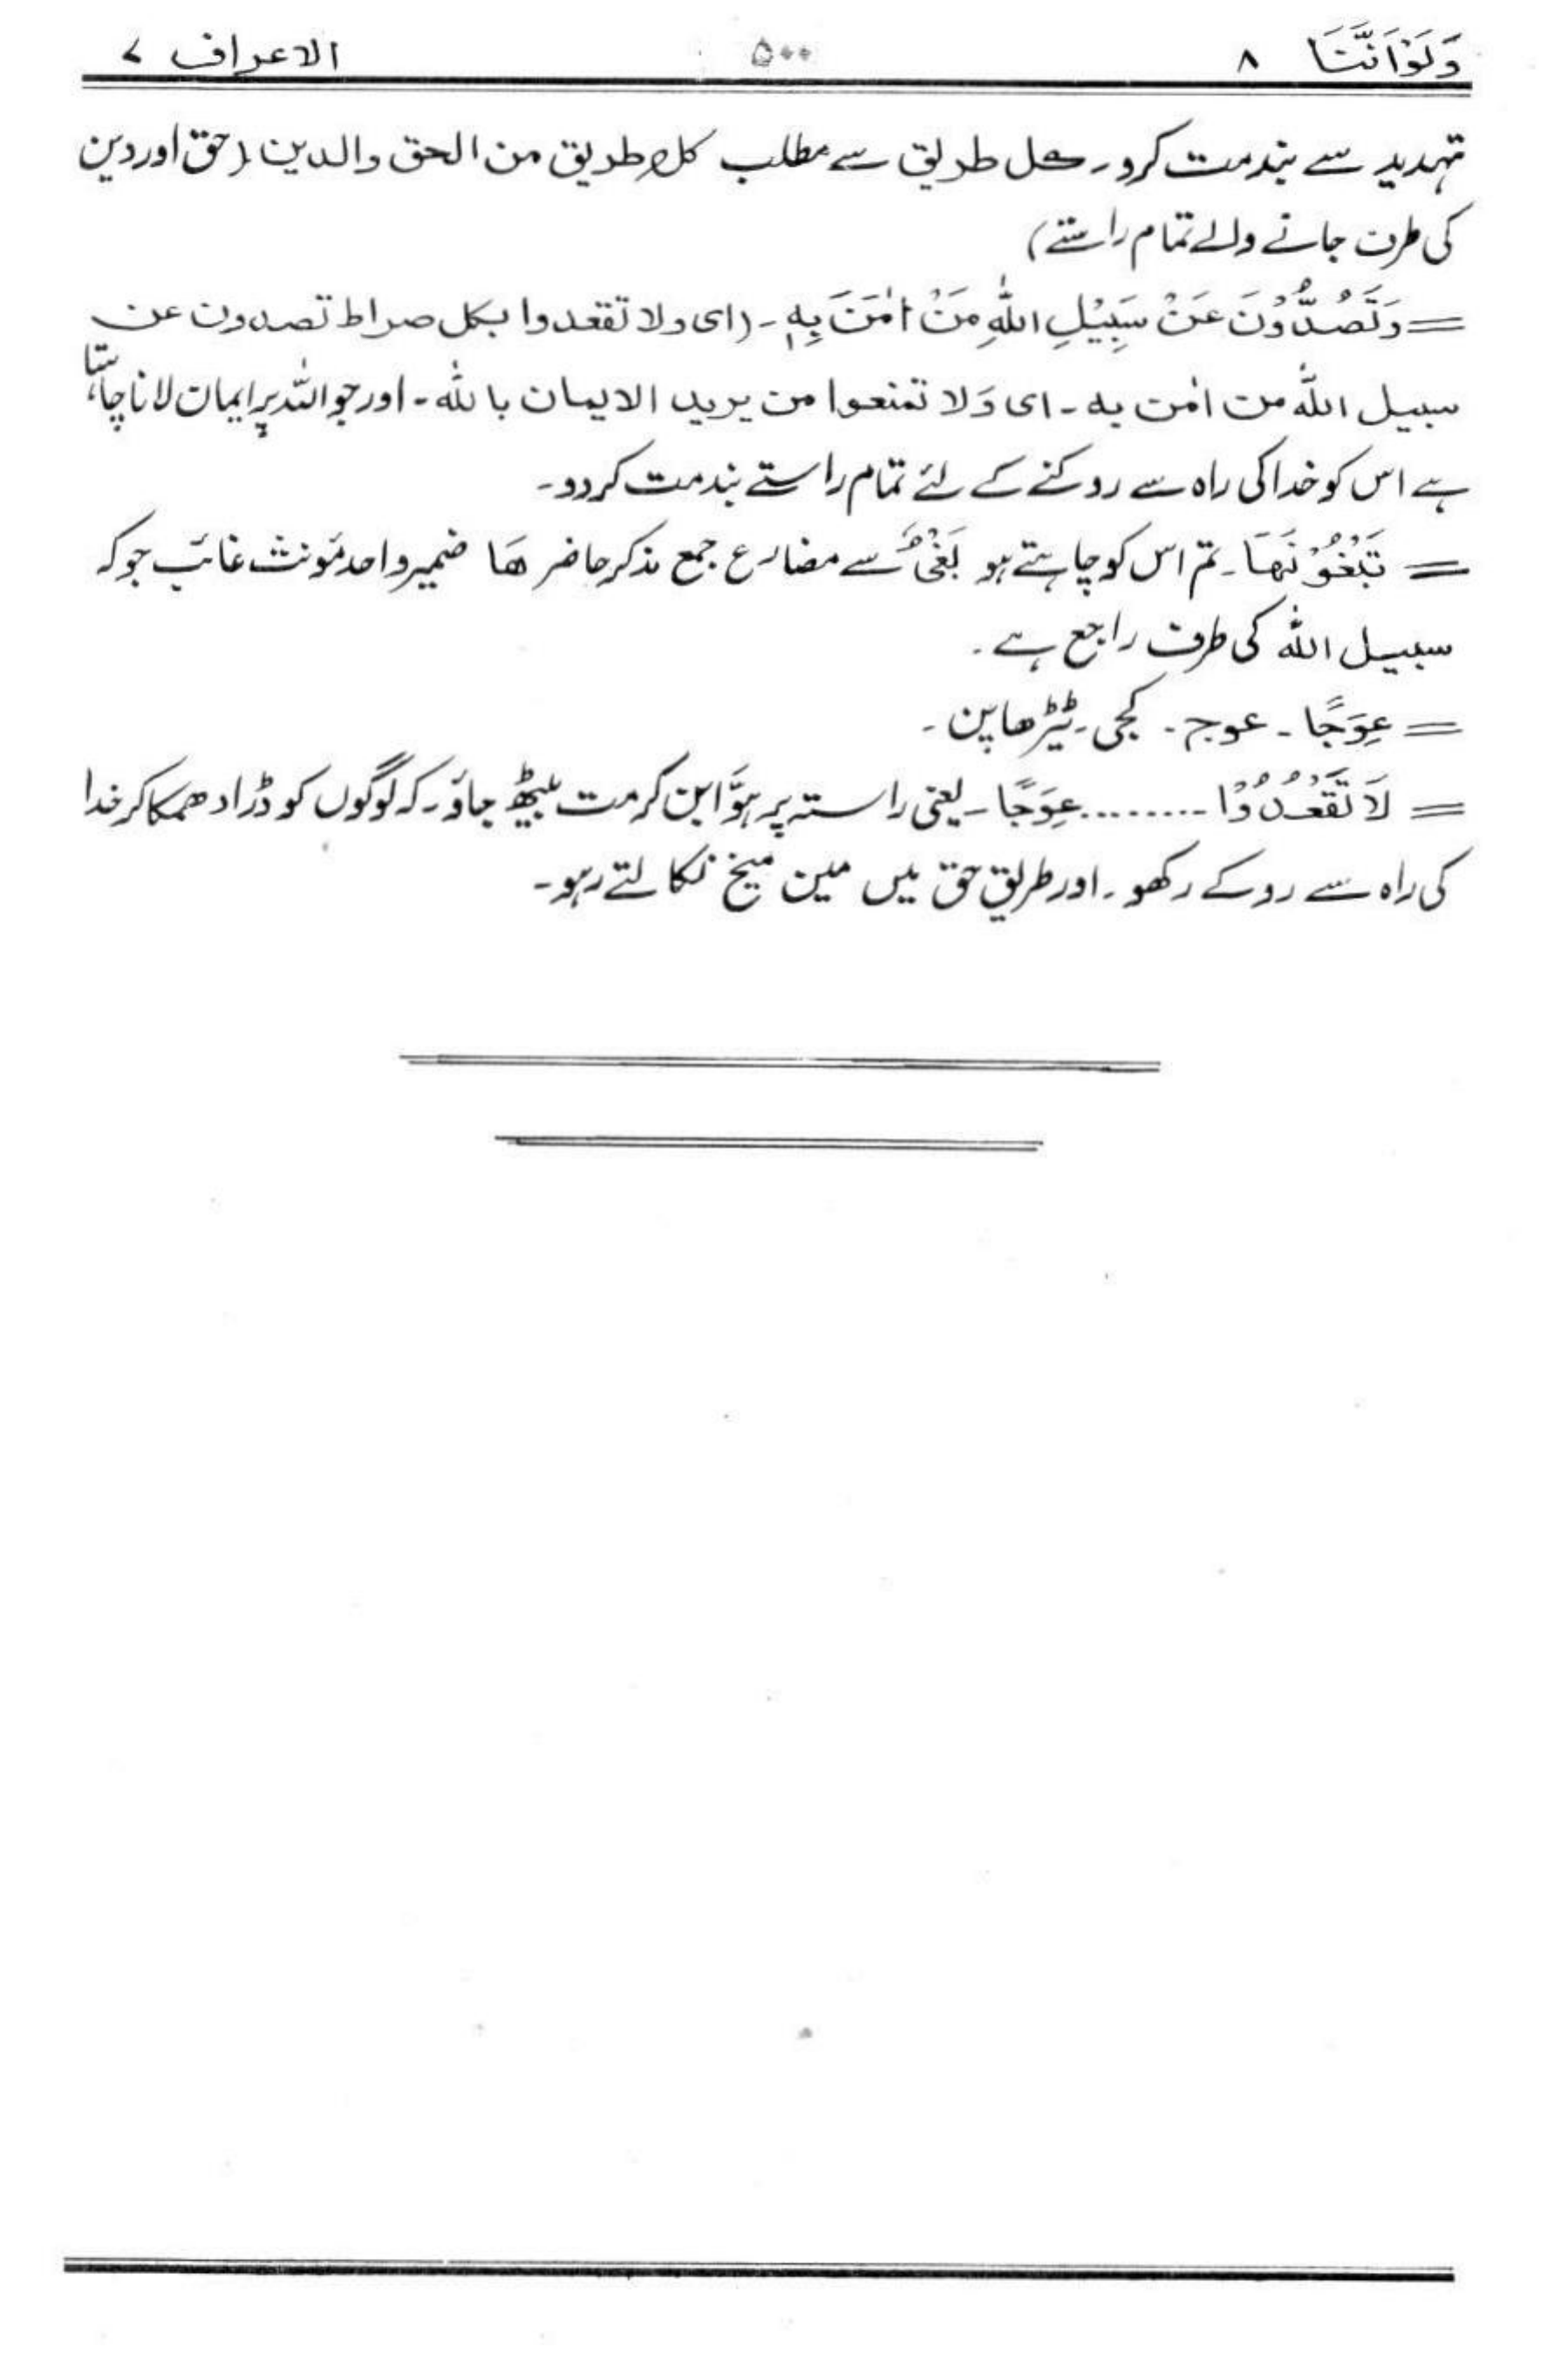 وَلَوْاَنَّنَا ٨ ۵۰۰ الاعراف ۷
تہدید سے بند مت کرو۔ کل طریق سے مطلب کل طریق من الحق والدین (حق اور دین
کی طرف جانے والے تمام راستے)
= وَتَصُدُّوْنَ عَنْ سَبِیْلِ اللّٰہِ مَنْ اٰمَنَ بِہٖ ۔ (ای ولا تقعدوا بکل صراط تصدون عن
سبیل اللّٰہ من اٰمن بہ ۔ ای وَلا تمنعوا من یرید الایمان باللّٰہ ۔ اور جو اللہ پر ایمان لانا چاہتا
ہے اس کو خدا کی راہ سے روکنے کے لئے تمام راستے بند مت کردو۔
= تَبْغُوْنَھَا۔ تم اس کو چاہتے ہو بَغْیٌ سے مضارع جمع مذکر حاضر ھَا ضمیر واحد مؤنث غائب جو کہ
سبیل اللّٰہ کی طرف راجع ہے ۔
= عِوَجًا ۔ عوج ۔ کجی ۔ ٹیڑھا پن ۔
= لَا تَقْعُدُوْا ......... عِوَجًا ۔ یعنی راستہ پر ہوّا بن کر مت بیٹھ جاؤ۔ کہ لوگوں کو ڈرا دھمکا کر خدا
کی راہ سے روکے رکھو ۔ اور طریقِ حق میں مین میخ نکالتے رہو ۔